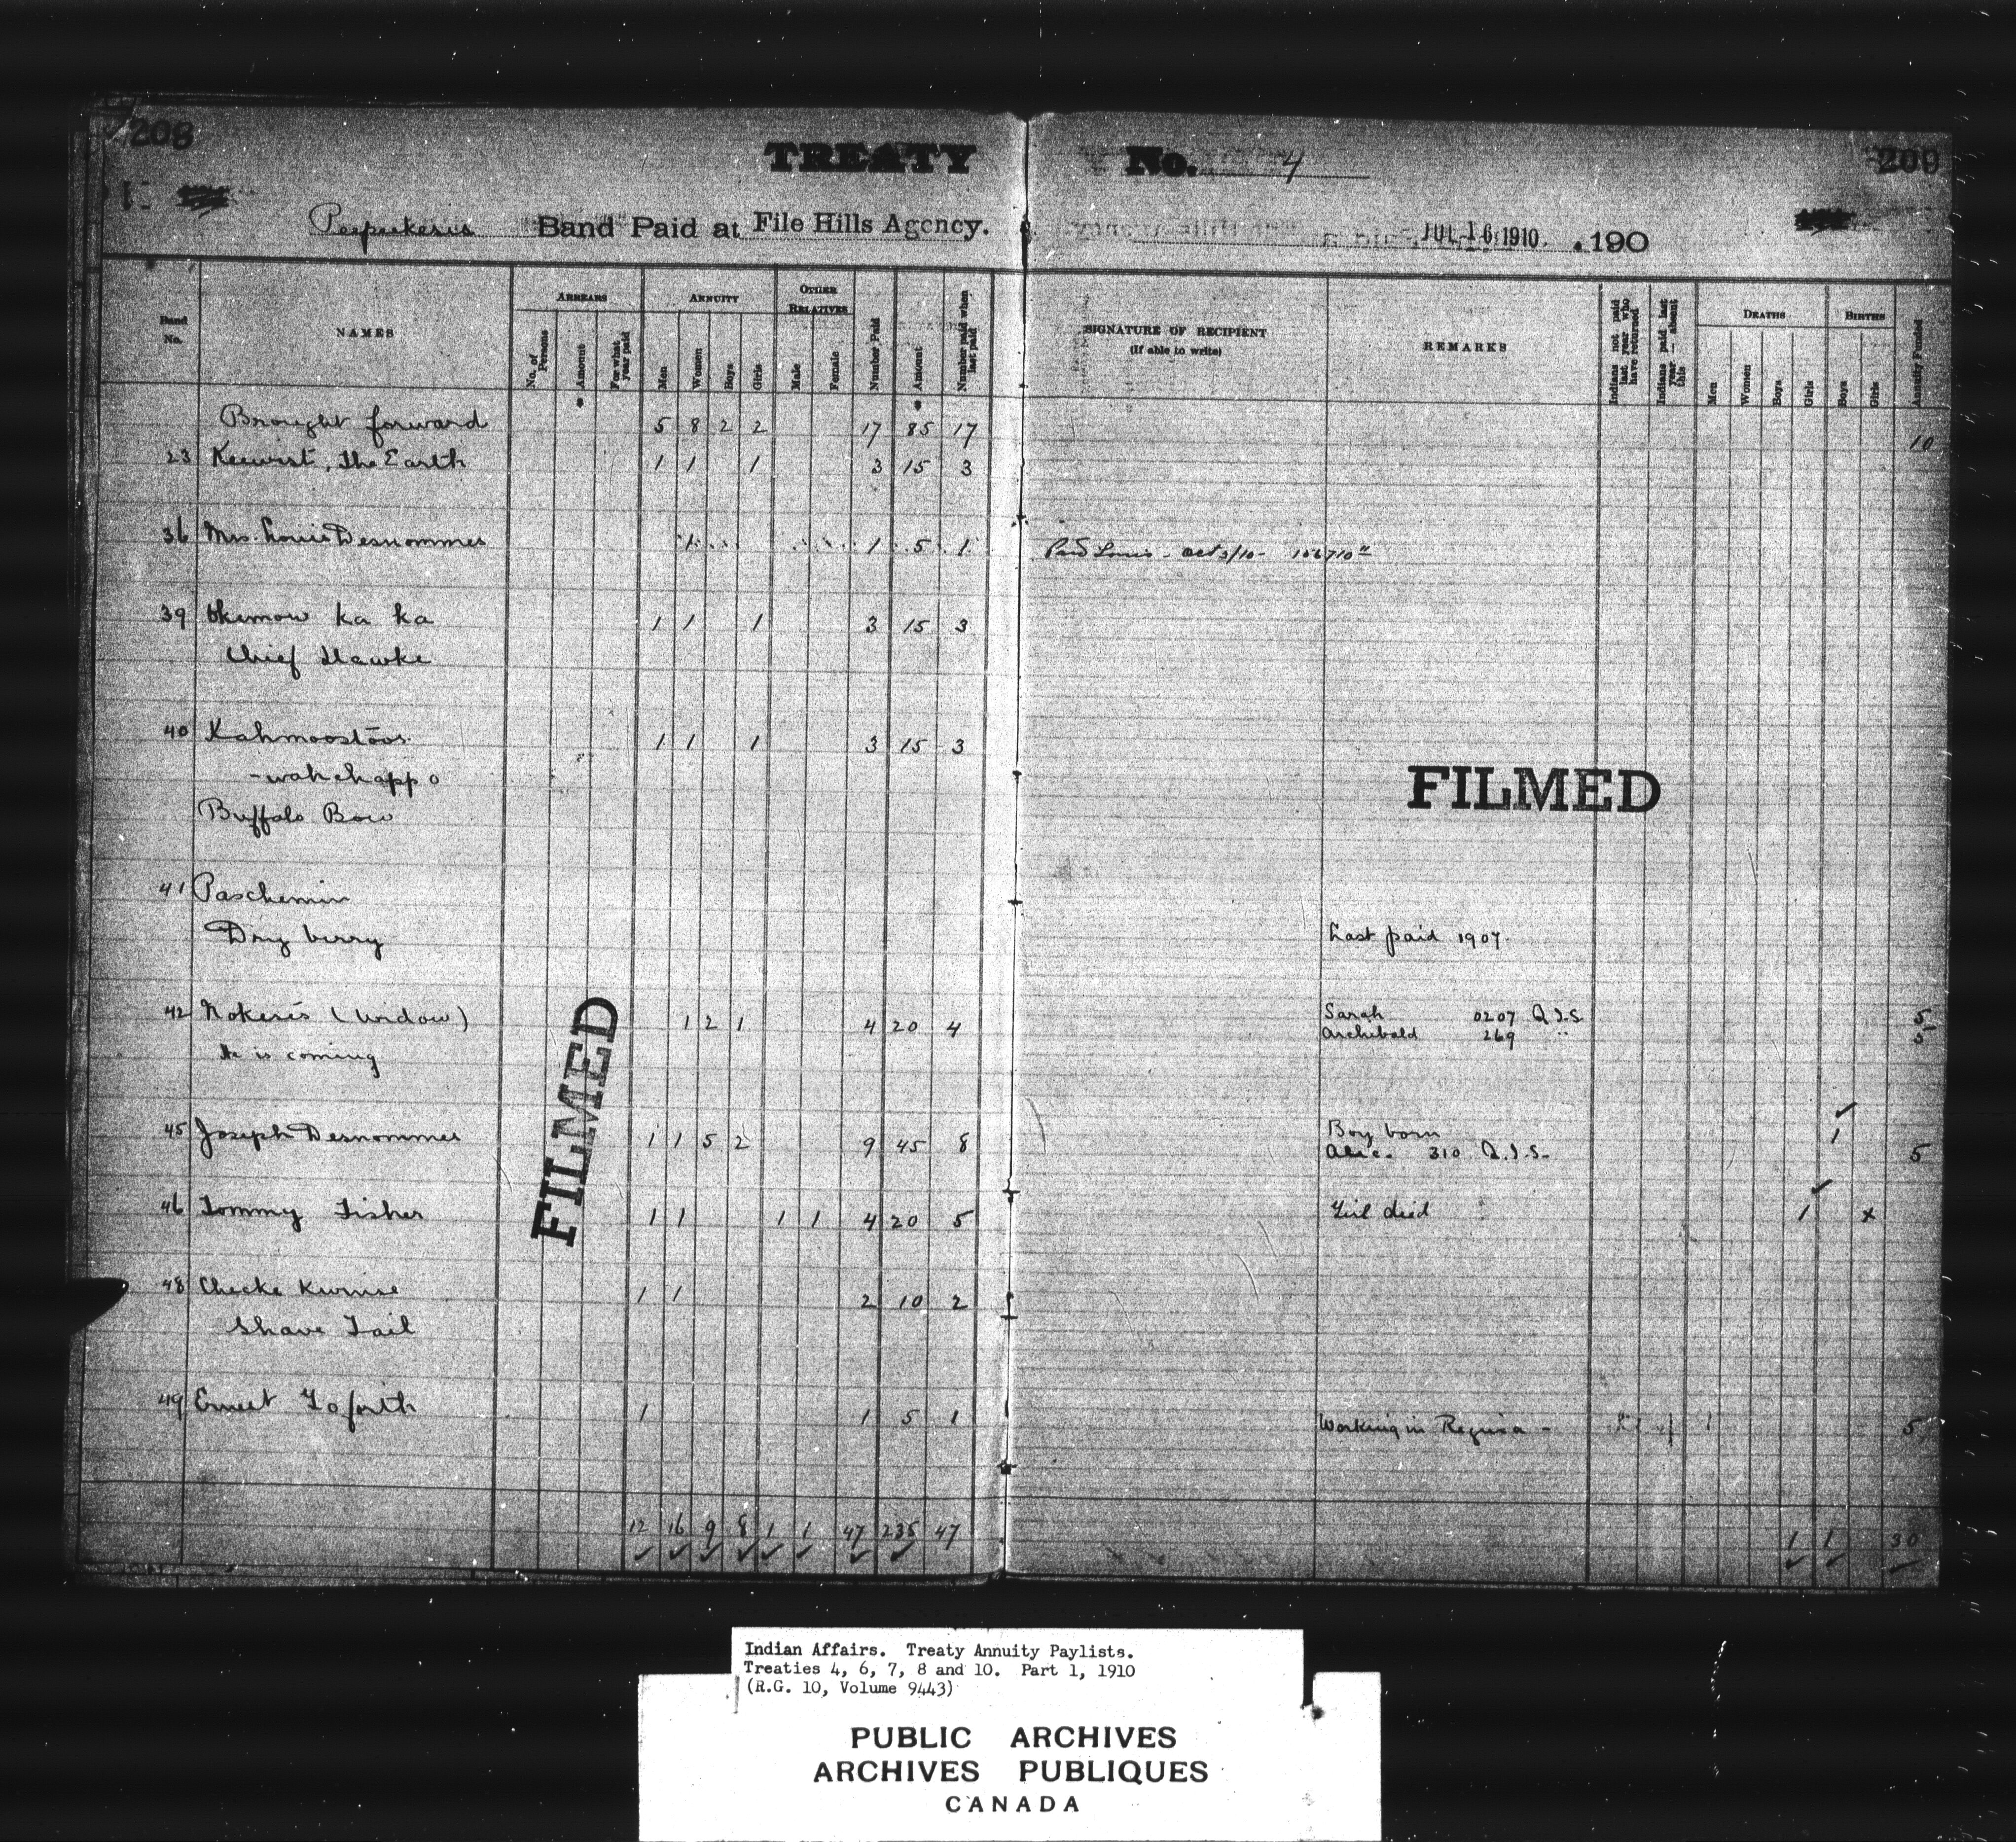 208
TREATY No. 4
209
Peepeekesis Band Paid at File Hills Agency.
JUL 16 1910 . 190
Band No.
NAMES
ARREARS
No. of Persons
Amount
For what year paid
ANNUITY
Men
Women
Boys
Girls
OTHER RELATIVES
Male
Female
Number Paid
Amount
Number paid when last paid
SIGNATURE OF RECIPIENT
(If able to write)
REMARKS
Indians not paid last year who have returned
Indians paid last year — absent this
DEATHS
Men
Women
Boys
Girls
BIRTHS
Boys
Girls
Annuity Funded
Brought forward 5 8 2 2 17 85 17 10
23 Keewist, The Earth 1 1 1 3 15 3
36 Mrs. Louis Desnommes 1 1 5 1 Paid Louis - Oct 3/10 -
39 Okemow ka ka 1 1 1 3 15 3
Chief Hawke
40 Kahmoostoos 1 1 1 3 15 3
-wahchappo
Buffalo Bow
FILMED
41 Paschemin
Dry berry Last paid 1907.
42 Nokeses (Widow) 1 2 1 4 20 4 Sarah 0207 Q.I.S. 5
Archibald 269 " 5
He is coming
FILMED
45 Joseph Desnommes 1 1 5 2 9 45 8 Boy born 1
Alic. 310 Q.I.S. 5
46 Tommy Fisher 1 1 1 1 4 20 5 Girl died 1 x
48 Checke Kumse 1 1 2 10 2
Shave Tail
49 Ernest Goforth 1 1 5 1 Working in Regina - 5
12 16 9 8 1 1 47 235 47 1 1 30
Indian Affairs. Treaty Annuity Paylists.
Treaties 4, 6, 7, 8 and 10. Part 1, 1910
(R.G. 10, Volume 9443)
PUBLIC ARCHIVES
ARCHIVES PUBLIQUES
CANADA